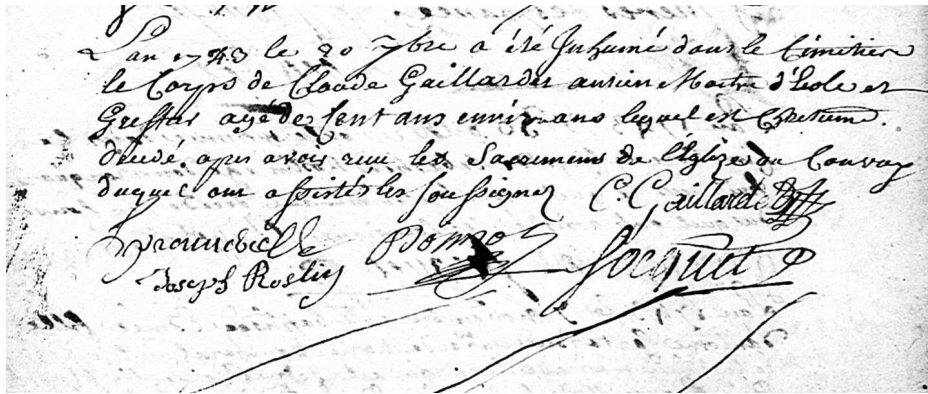 L'an 1743 le 20 7bre a été Inhumé dans le Cimetier
le Corps de Claude Gaillardet ancien Maitre d'Ecole et
Greffier agé de Cent ans environ lequel est
décédé apres avoir recu les Sacremens de l'Eglize au Convay
duquel ont assistés les soussignez C. Gaillardet
Joseph Roslin Jocquet